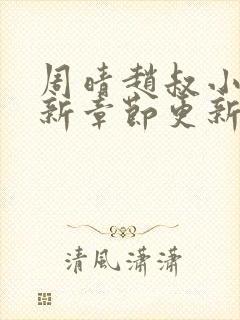 周晴趙叔小
新章節更新
清風瀟瀟